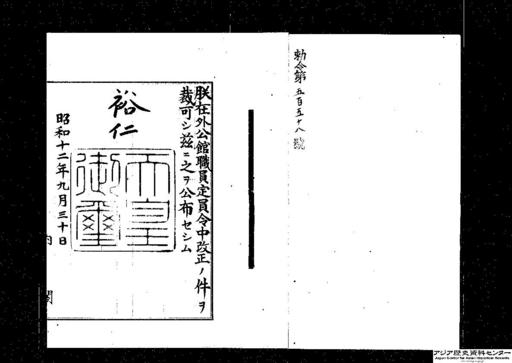 勅令第五百五十八號
朕在外公館職員定員令中改正ノ件ヲ
裁可シ茲ニ之ヲ公布セシム
裕仁
天皇御璽
昭和十二年九月三十日
内閣
アジア歴史資料センター
Japan Center for Asian Historical Records